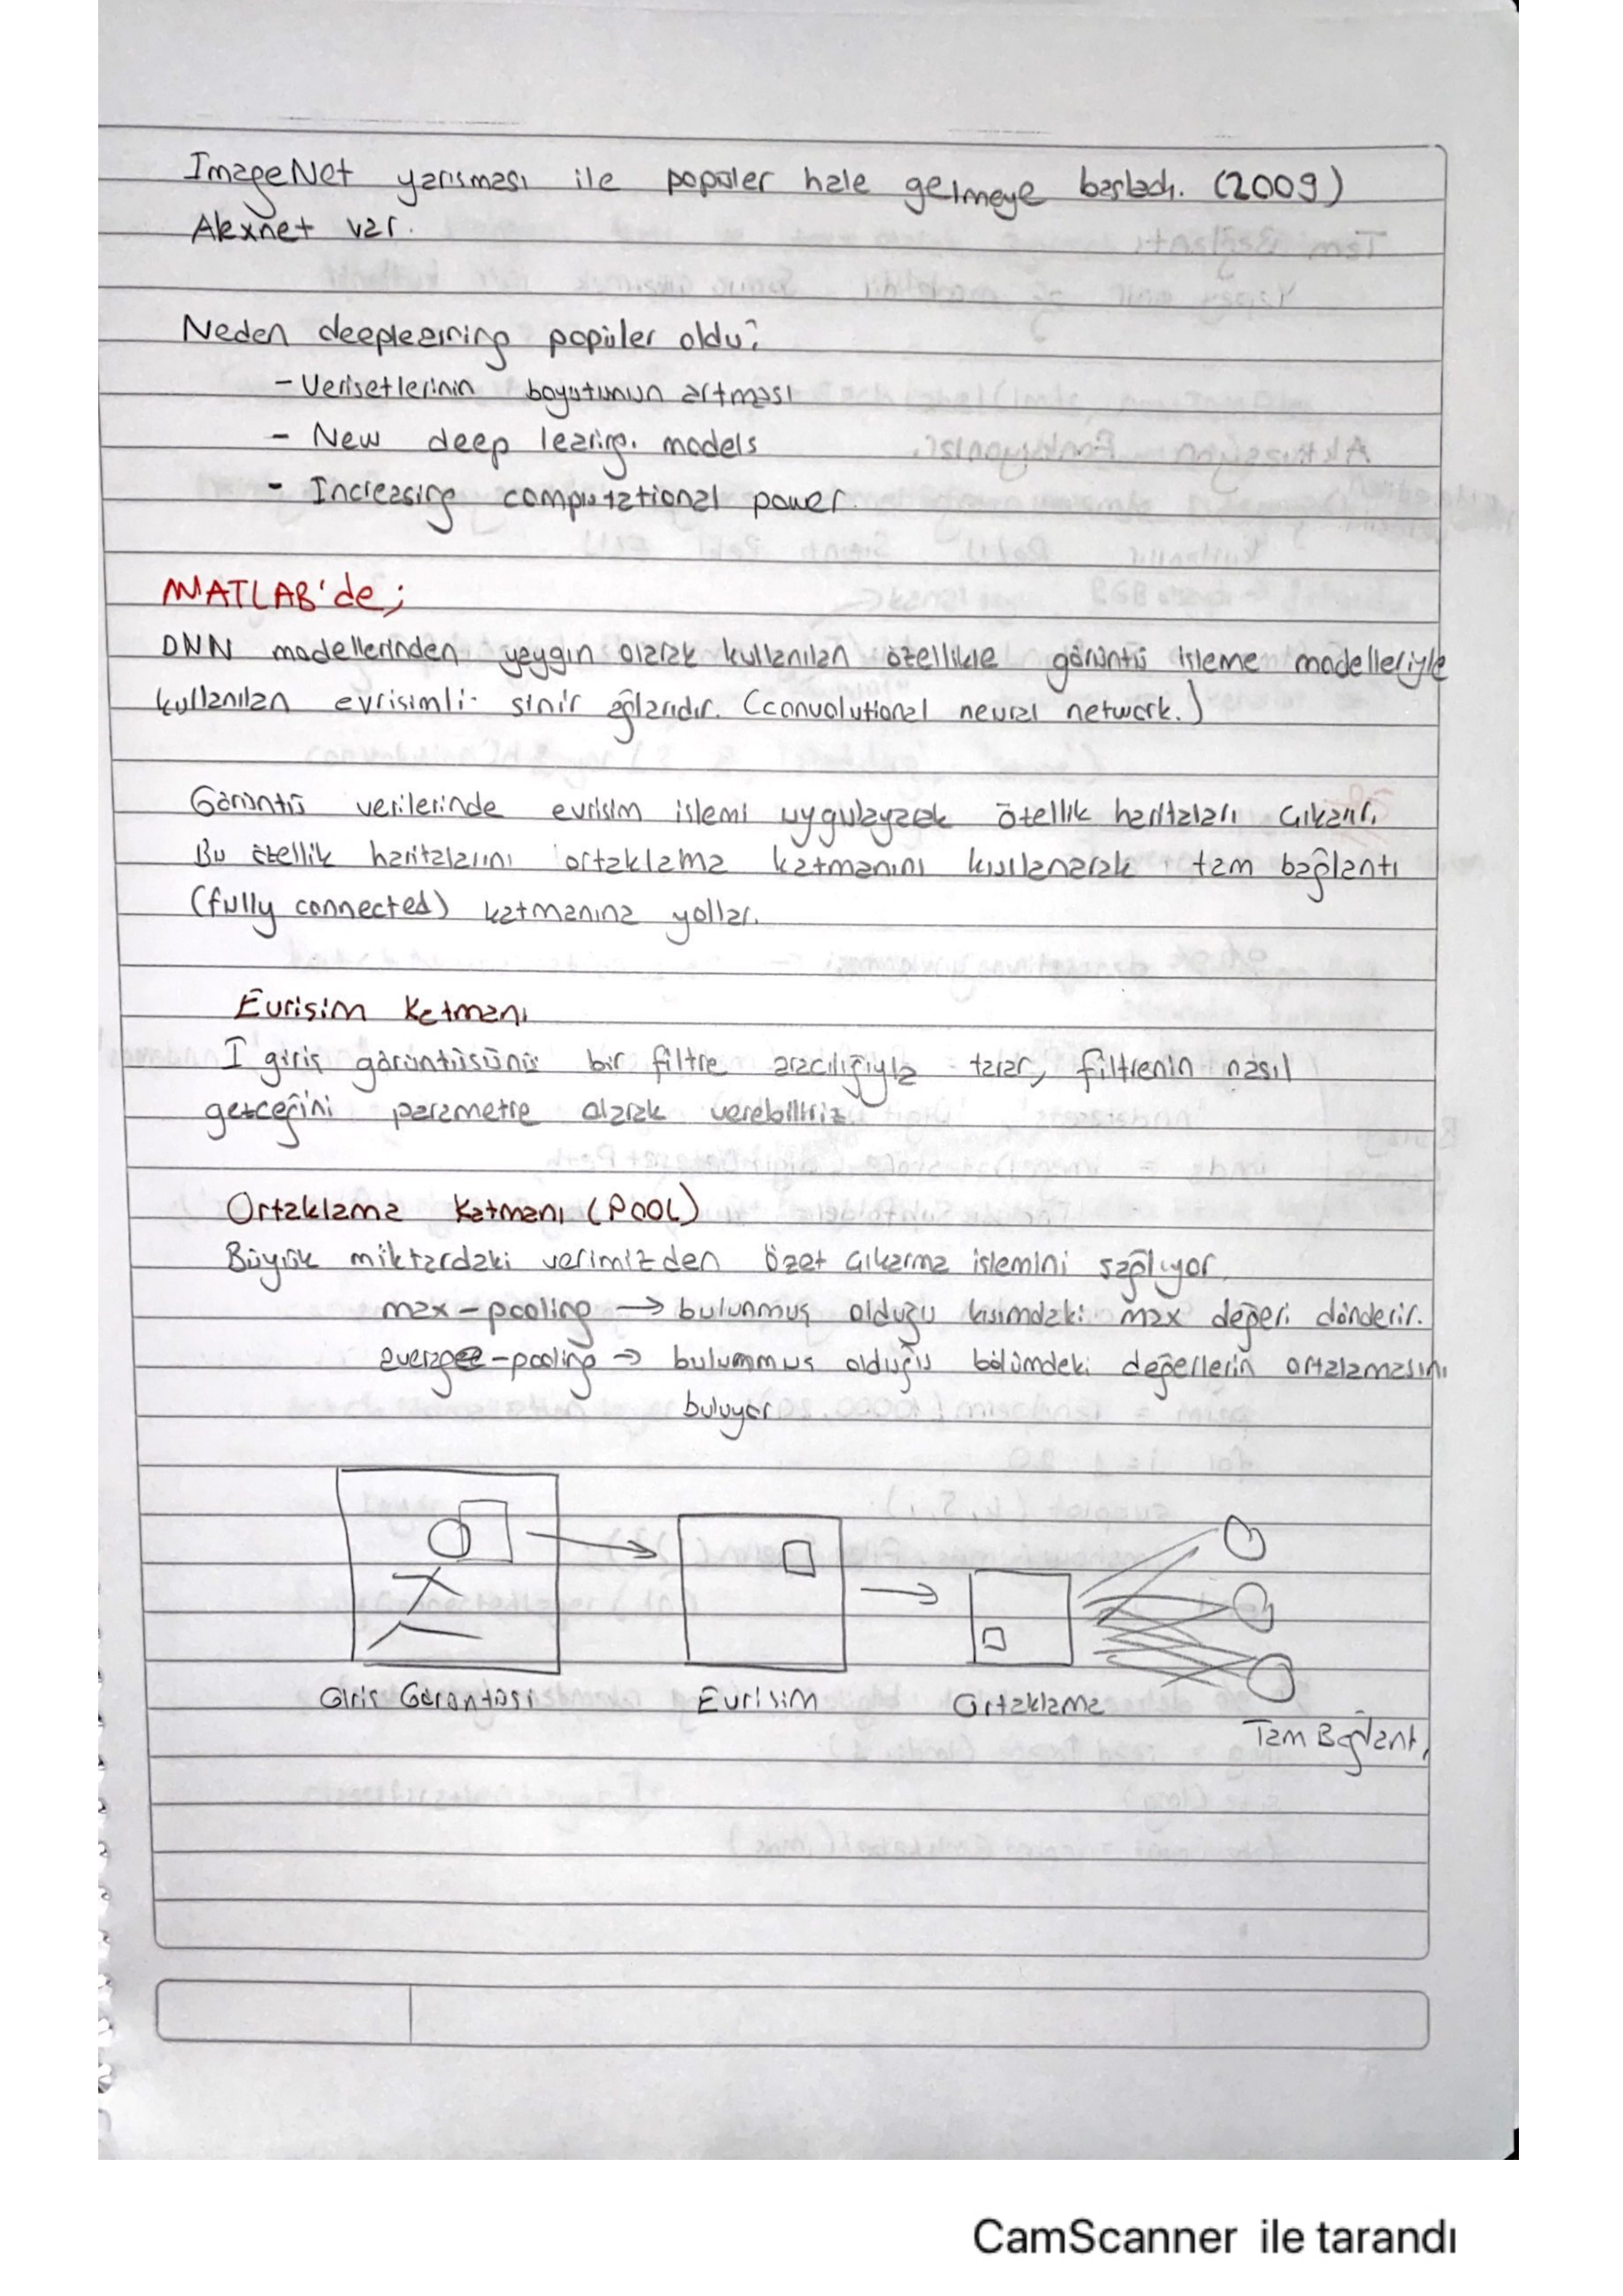 ImageNet yarışması ile popüler hale gelmeye başladı. (2009)
Alexnet var.
Neden deeplearning popüler oldu?
- Verisetlerinin boyutunun artması
- New deep learing. models
- Increasing computational power.
MATLAB'de;
DNN modellerinden yaygın olarak kullanılan özellikle görüntü işleme modelleriyle
kullanılan evrisimli sinir ağlarıdır. (convolutional neural network.)
Görüntü verilerinde evrisim islemi uygulayarak özellik haritaları çıkarır.
Bu özellik haritalarını ortaklama katmanını kullanarak tam bağlantı
(fully connected) katmanına yollar.
Evrisim Katmanı
I giriş görüntüsünü bir filtre aracılığıyla tarar, filtrenin nasıl
gezceğini parametre olarak verebiliriz.
Ortaklama Katmanı (POOL)
Büyük miktardaki verimizden özet çıkarma islemini sağlıyor.
max-pooling → bulunmuş olduğu kısımdaki max değeri dönderir.
average-pooling → bulunmuş olduğu bölümdeki değerlerin ortalamasını
buluyor
Giris Görüntüsü Evrisim Ortaklama
Tam Bağlantı
CamScanner ile tarandı